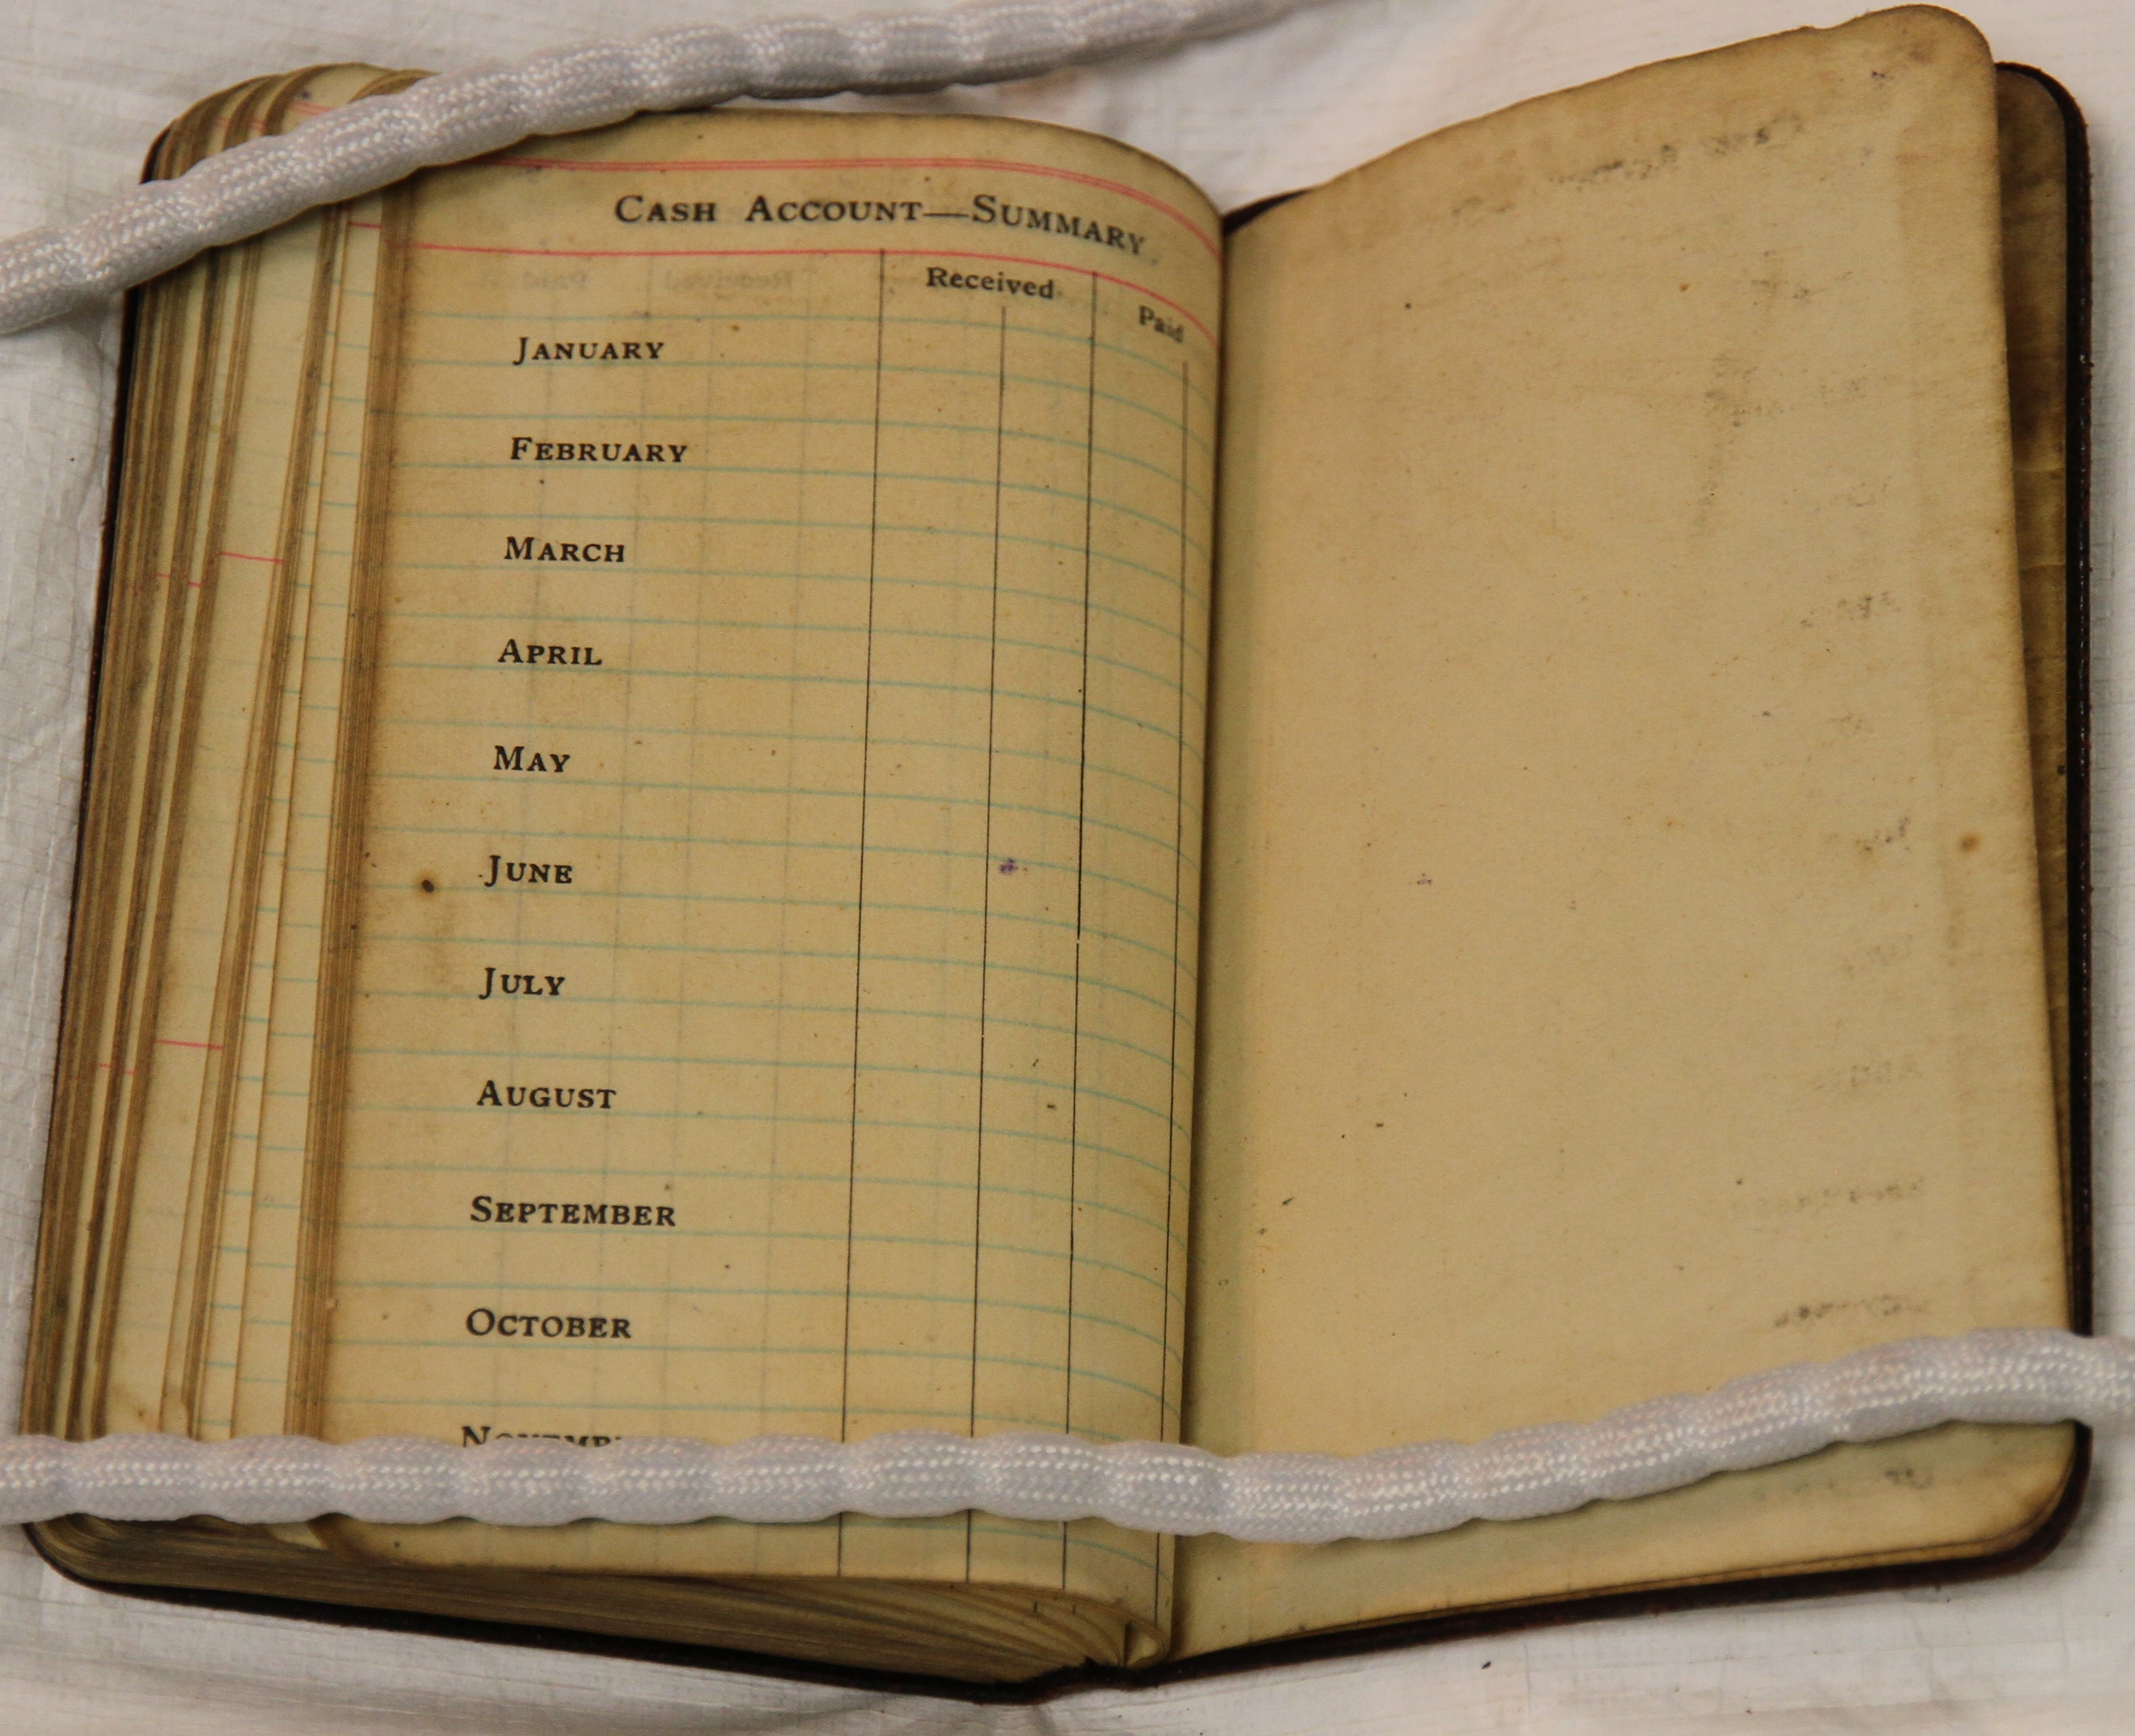 CASH ACCOUNT—SUMMARY.
Received Paid
JANUARY
FEBRUARY
MARCH
APRIL
MAY
JUNE
JULY
AUGUST
SEPTEMBER
OCTOBER
NOVEMBE